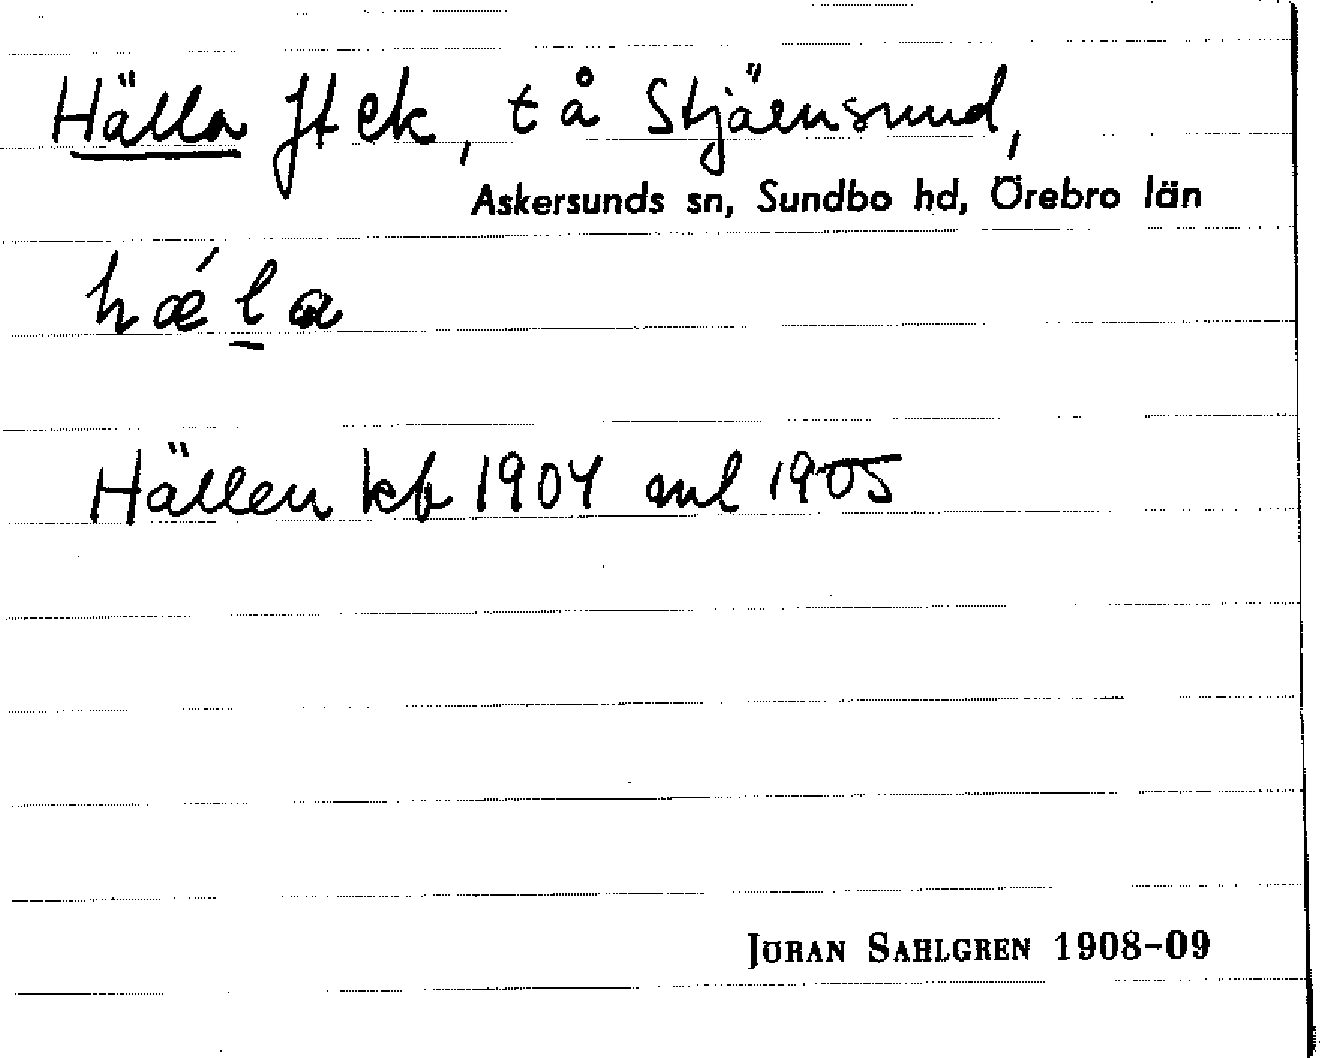 Hälla ft ek, t å Stjärnsund,
Askersunds sn, Sundbo hd, Örebro län
hǽla
Hällen kb 1904 ml 1905
JÖRAN SAHLGREN 1908-09